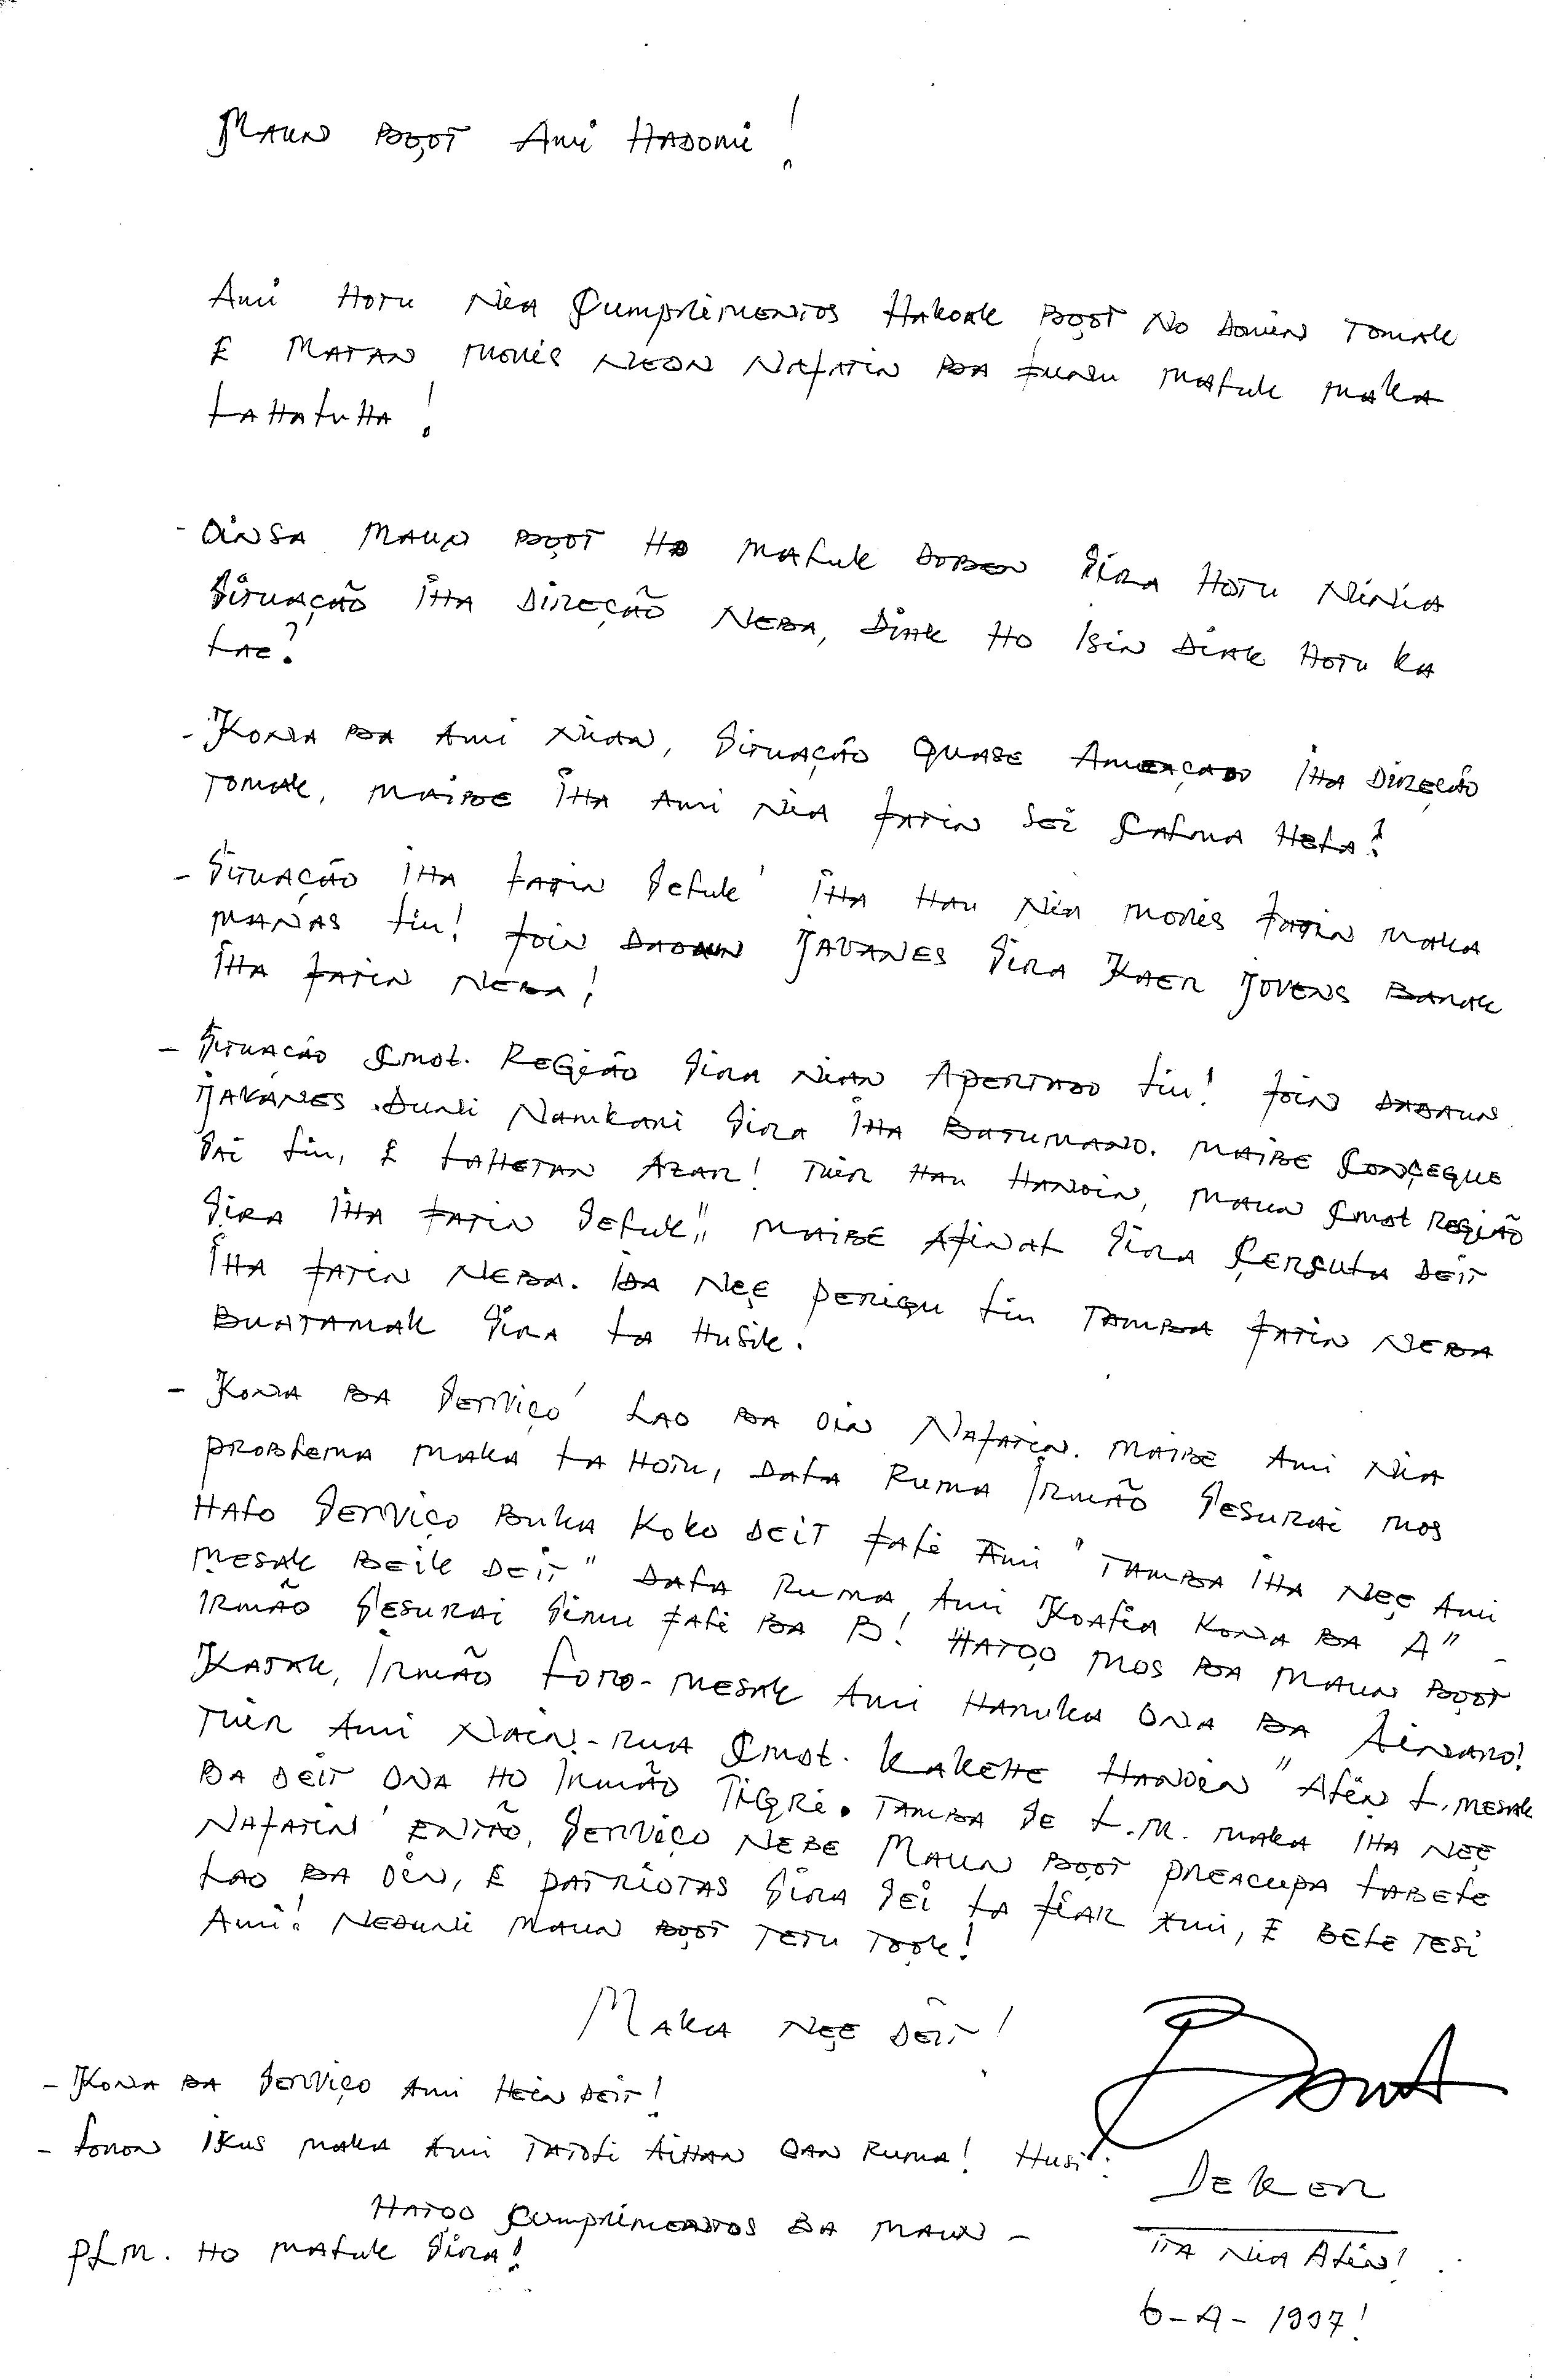 Maun Boot Ami Hadomi!
Ami Hotu Nia Cumprimentos Hakoak Boot no Domin Tomak
E Matan Moris Neon Nafatin ba Funu Maluk Maka
Lahaluha!
- Oinsa Maun Boot Ho Maluk Doben Sira Hotu Ninia
Situação iha Direção Neba, Diak Ho Isin Diak Hotu ka
Lae?
- Kona ba Ami Nian, Situação Quase Ameaçado iha Direção
Tomak, Maibe iha Ami Nia Fatin Sei Calma Hela!
- Situação iha Fatin Seluk' iha Hau Nia Moris Fatin Maka
Manas Liu! Foin Dadaun Javanes Sira Kaer Jovens Barak
iha Fatin Neba!
- Situação Cmdt. Região Sira Nian Apertado Liu! Foin Dadaun
Javanes Duni Namkari Sira iha Batumano. Maibe Conçegue
Sai Liu, E Lahetan Azar! Tuir Hau Hanoin, Maun Cmdt Região
Sira iha Fatin Seluk" Maibe Afinal Sira Cerguta Deit
iha Fatin Neba. Ida Nee Perigu Liu Tamba Fatin Neba
Buatamak Sira La Husik.
- Kona ba Serviço' Lao ba Oin Nafatin. Maibe Ami Nia
Problema Maka La Hotu, Dala Ruma Irmão Sesurai Mos
Halo Serviço Buka Koko Deit Fali Ami "Tamba iha Nee Ami
Mesak Beik Deit" Dala Ruma, Ami Koalia Kona ba A"
Irmão Sesurai Simu Fali ba B! Hatoo Mos ba Maun Boot
Katak, Irmão Loro-Mesak Ami Haruka Ona ba Ainaro!
Tuir Ami Nain-Rua Cmdt. Kakehe Hanoin" Alin L. Mesak
ba Deit Ona Ho Irmão Tigri. Tamba Se L.M. Maka iha Nee
Nafatin' Então, Serviço Nebe Maun Boot Preacupa Labele
Lao ba Oin, E Patriotas Sira Sei La Fiar Ami, E Bele Tesi
Ami! Neduni Maun Boot Tetu Took!
Maka Nee Deit!
- Kona ba Serviço Ami Hein Deit!
- Loron Ikus Maka Ami Tatoli Aihan Oan Ruma! Husi:
Deker
Hatoo Cumprimentos ba Maun -
PLM. Ho Maluk Sira!
Ita Nia Alin!
6-4-1997!